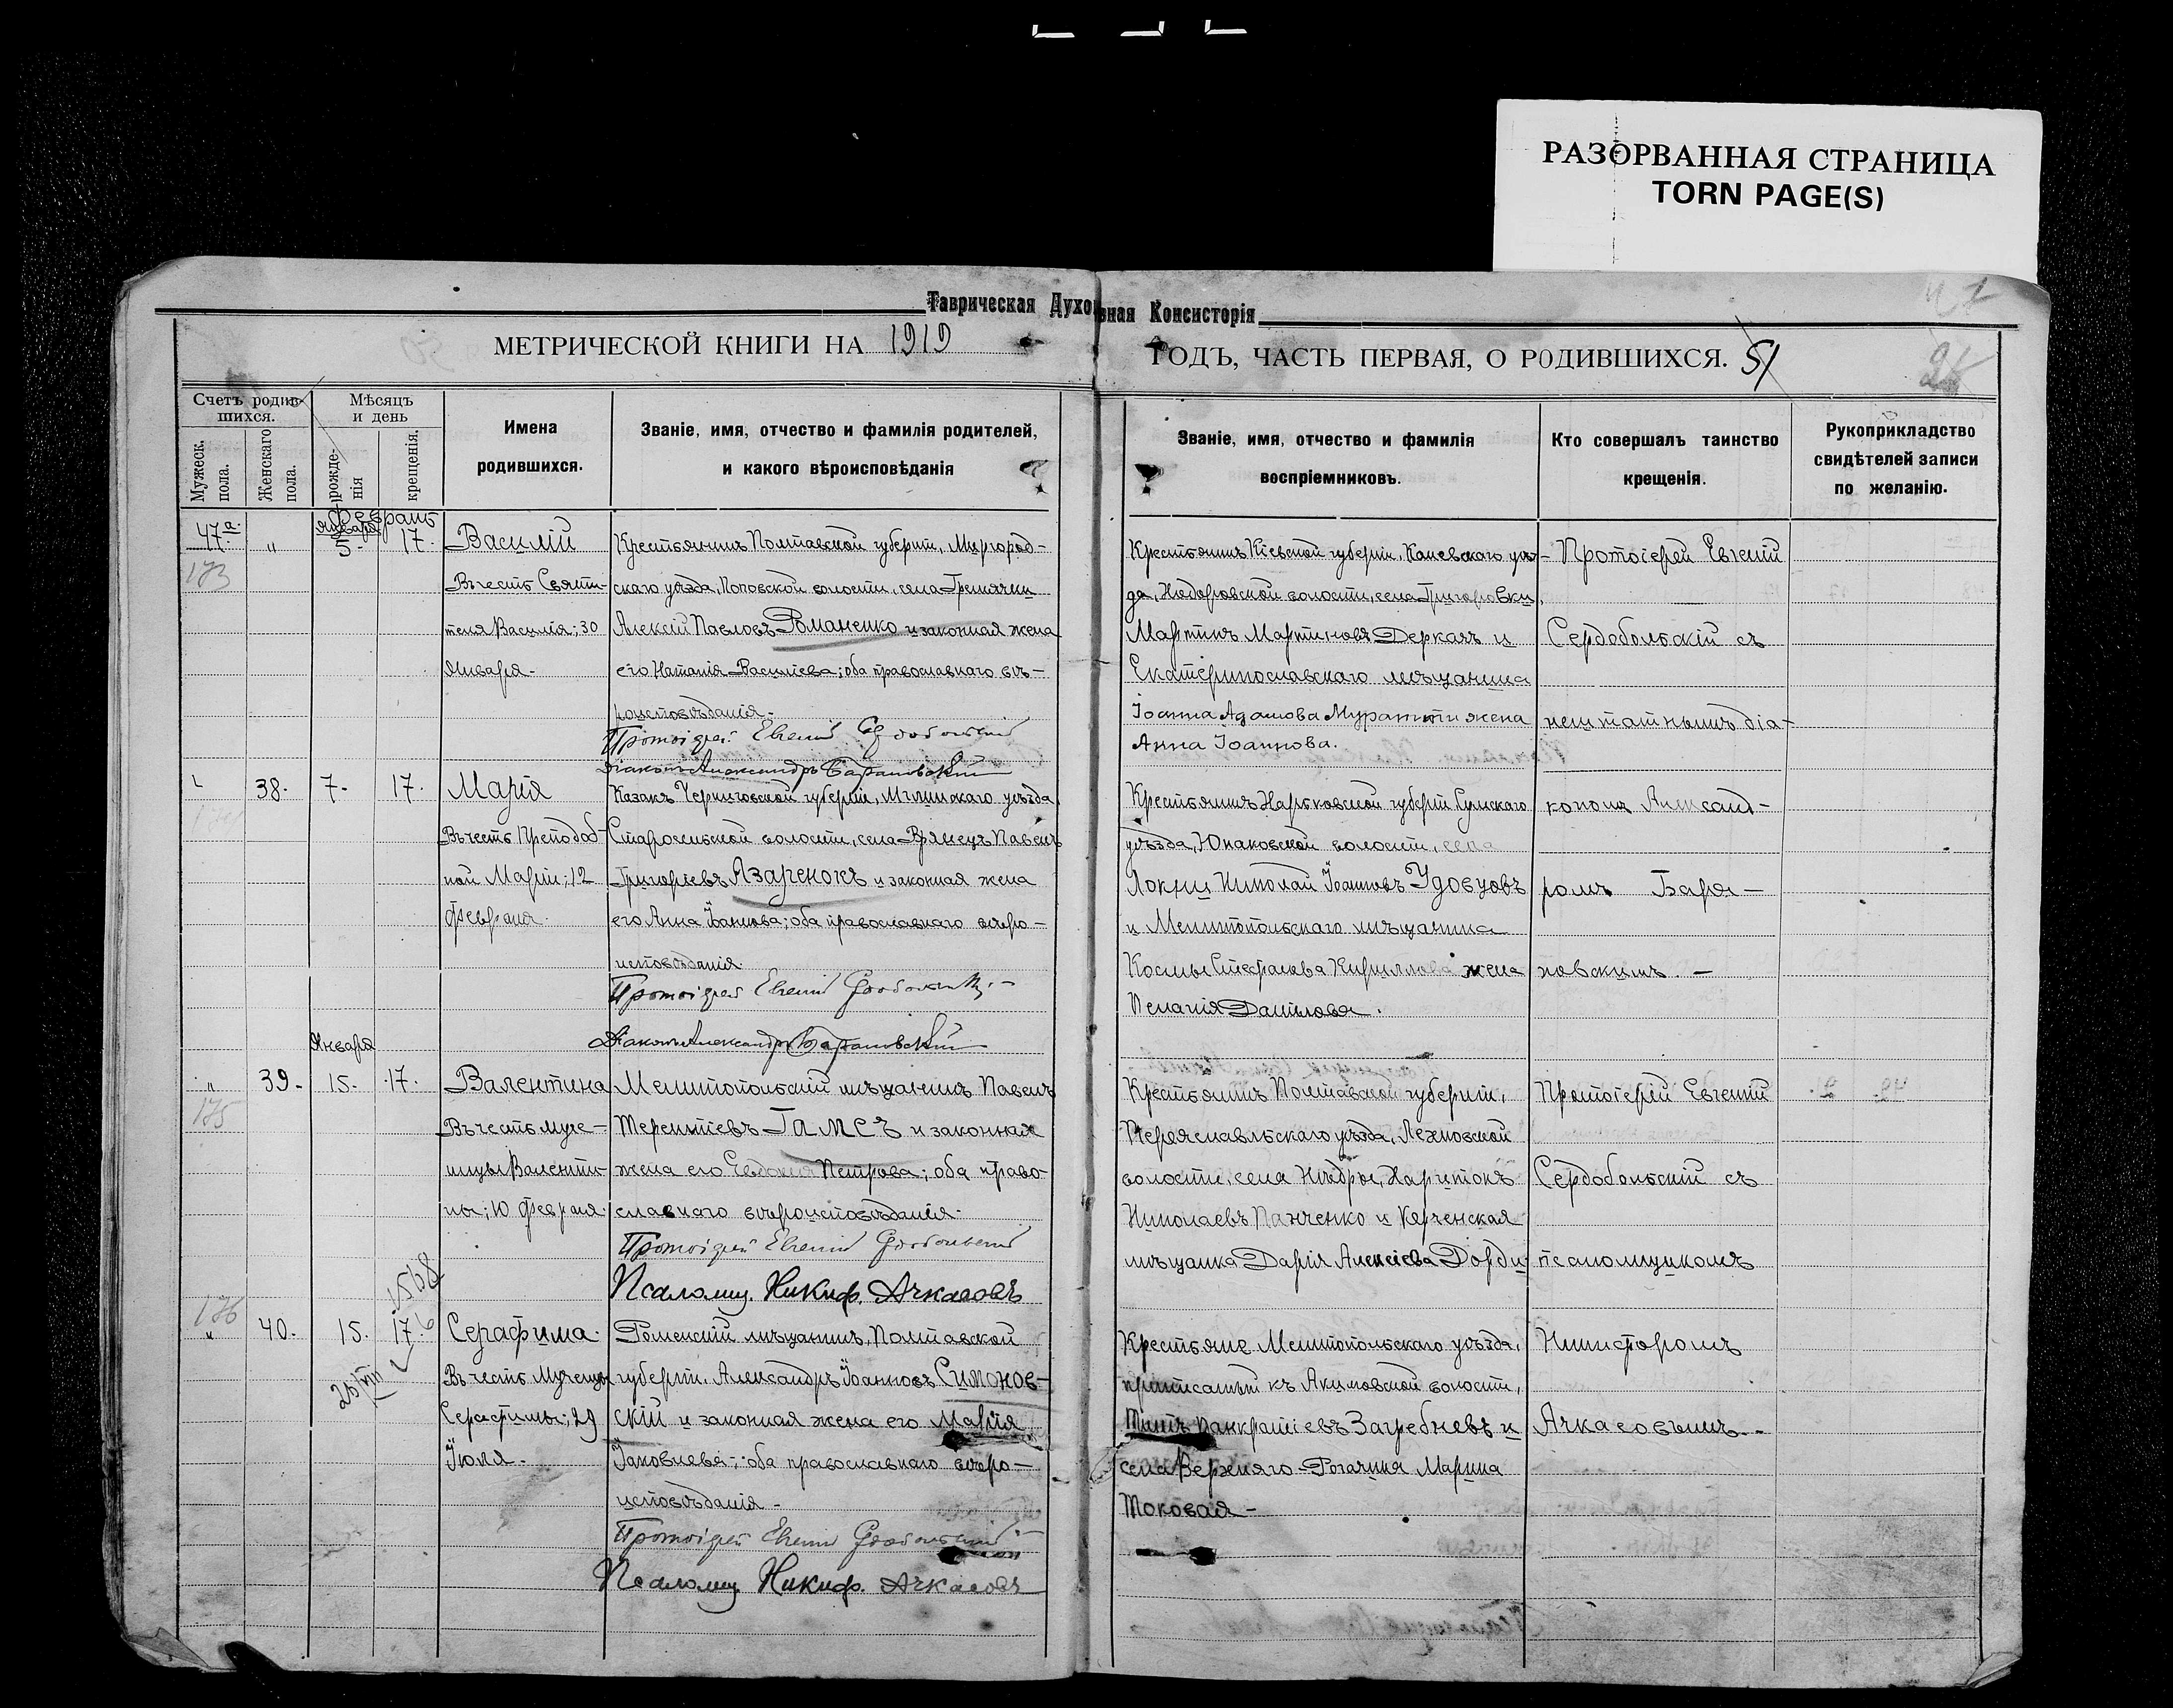 РАЗОРВАННАЯ СТРАНИЦА
TORN PAGE(S)
Таврическая Духовная Консисторія
МЕТРИЧЕСКОЙ КНИГИ НА 1919 ГОДЪ, ЧАСТЬ ПЕРВАЯ, О РОДИВШИХСЯ. 51
Счетъ родив-
шихся.
Мужеск.
пола.
Женскаго
пола.
Мѣсяцъ
и день
рожде-
нія
крещенія.
Имена
родившихся.
Званіе, имя, отчество и фамилія родителей,
и какого вѣроисповѣданія
Званіе, имя, отчество и фамилія
воспріемниковъ.
Кто совершалъ таинство
крещенія.
Рукоприкладство
свидѣтелей записи
по желанію.
Января
47а. " 5. 17.
173
Василій
Въ честь Святи-
теля Василія; 30
Января.
Крестьянинъ Полтавской губерніи, Миргород-
скаго уѣзда, Поповской волости, села
Алексій Павловъ Романенко и законная жена
его Наталія Васильева; оба православнаго вѣ-
роисповѣданія.
Протоіерей Евгеній Сердобольскій
Діаконъ Александръ Барановскій
Крестьянинъ Кіевской губерніи, Каневскаго уѣз-
да, Ходоровской волости, села Григоровки,
Мартинъ Мартиновъ Деркачъ и
Екатеринославскаго мѣщанина
Іоанна Адамова жена
Анна Іоаннова.
Протоіерей Евгеній
Сердобольскій съ
нештатнымъ діа-
кономъ Александ-
ромъ Бара-
новскимъ. -
38. 7. 17.
Марія
Въ честь Преподоб-
ной Маріи; 12
Февраля.
Казакъ Черниговской губерніи, Мглинскаго уѣзда,
волости, села Павелъ
Григорьевъ Азаренокъ и законная жена
его Анна Іоаннова; оба православнаго вѣро-
исповѣданія.
Протоіерей Евгеній Сердобольскій.
Діаконъ Александръ Барановскій
Крестьянинъ Харьковской губерніи Сумскаго
уѣзда, Юнаковской волости, села
Локни Николай Іоанновъ Удовцовъ
и Мелитопольскаго мѣщанина
Космы Стефанова Кириллова жена
Пелагія Данилова.
Января
" 39. 15. 17.
175
Валентина
Въ честь муче-
ницы Валенти-
ны; 10 Февраля.
Мелитопольскій мѣщанинъ Павелъ
Терентіевъ и законная
жена его Евдокія Петрова; оба право-
славнаго вѣроисповѣданія.
Протоіерей Евгеній Сердобольскій
Псаломщ. Никиф. Ачкасовъ
Крестьянинъ Полтавской губерніи,
Переяславльскаго уѣзда,
волости, села Харитонъ
Николаевъ Панченко и Керченская
мѣщанка Дарія Алексіева
Протоіерей Евгеній
Сердобольскій съ
псаломщикомъ
Никифоромъ
Ачкасовымъ.
176
" 40. 15. 17.
Серафима.
Въ честь Мученицы
Серафимы; 29
Іюля.
Роменскій мѣщанинъ, Полтавской
губерніи, Александръ Іоанновъ Симонов-
скій и законная жена его Марія
Іаковлева; оба православнаго вѣро-
исповѣданія.
Протоіерей Евгеній Сердобольскій
Псаломщ. Никиф. Ачкасовъ
Крестьяне Мелитопольскаго уѣзда,
приписаный къ Акимовской волости,
Титъ Панкратіевъ Загребневъ и
села Верхняго-Рогачика Марина
Токовая -